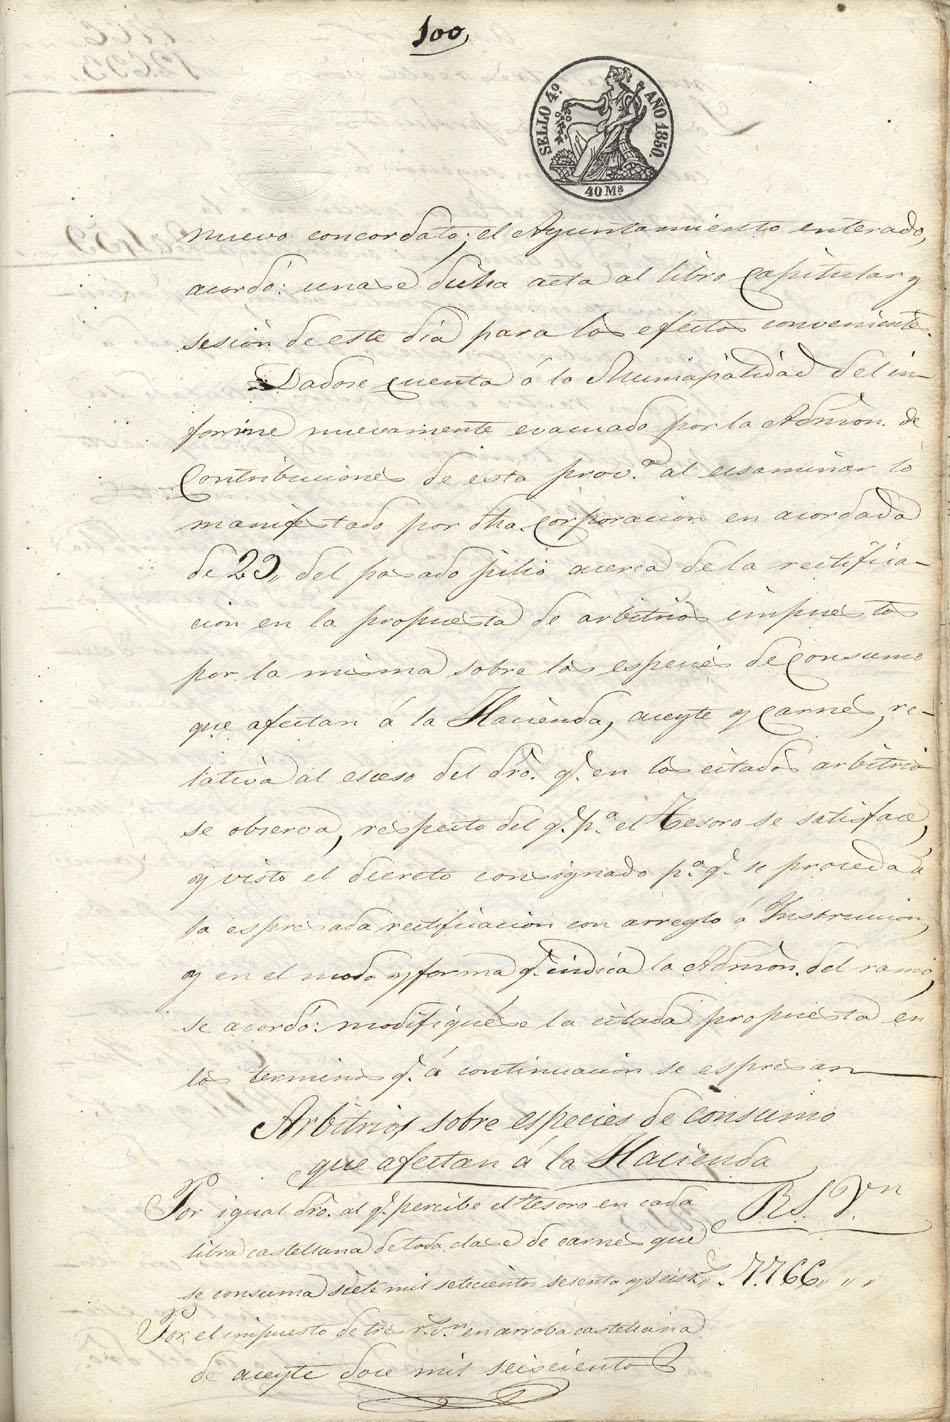 100,
SELLO 4º AÑO 1850.
40 Mˢ
nuevo concordato; el Ayuntamiento enterado,
acordó: unase dicha acta al libro Capitular y
sesión de este día para los efectos convenientes.
Dadose cuenta á la Municipalidad del in-
forme nuevamente evacuado por la Admon. de
Contribuciones de esta provª al ecsaminar lo
manifestado por dha. corporacion en acordada
de 29,, del pasado julio acerca de la rectifica-
cion en la propuesta de arbitrios impuestos
por la misma sobre las especies de consumo
que afectan á la Hacienda, aceyte y carnes, re-
lativa al esceso del dro. q. en los citados arbitrios
se observa, respecto del q. pª el Tesoro se satisface,
y visto el decreto consignado pª q. se proceda á
la espresada rectificacion con arreglo á Instruccion,
y en el modo y forma q. indica la Admon. del ramo,
se acordó: modifiquese la citada propuesta en
los terminos q. á continuacion se espresan
Arbitrios sobre especies de consumo
que afectan á la Hacienda
Rˢ. Vⁿ
Por igual dro. al q. percibe el tesoro en cada
libra castellana de toda clase de carnes que
se consuma siete mil setecientos sesenta y seis rˢ. 7.766,, ,, ,,
Por el impuesto de tres rˢ vⁿ en arroba castellana
de aceyte doce mil seiscientos